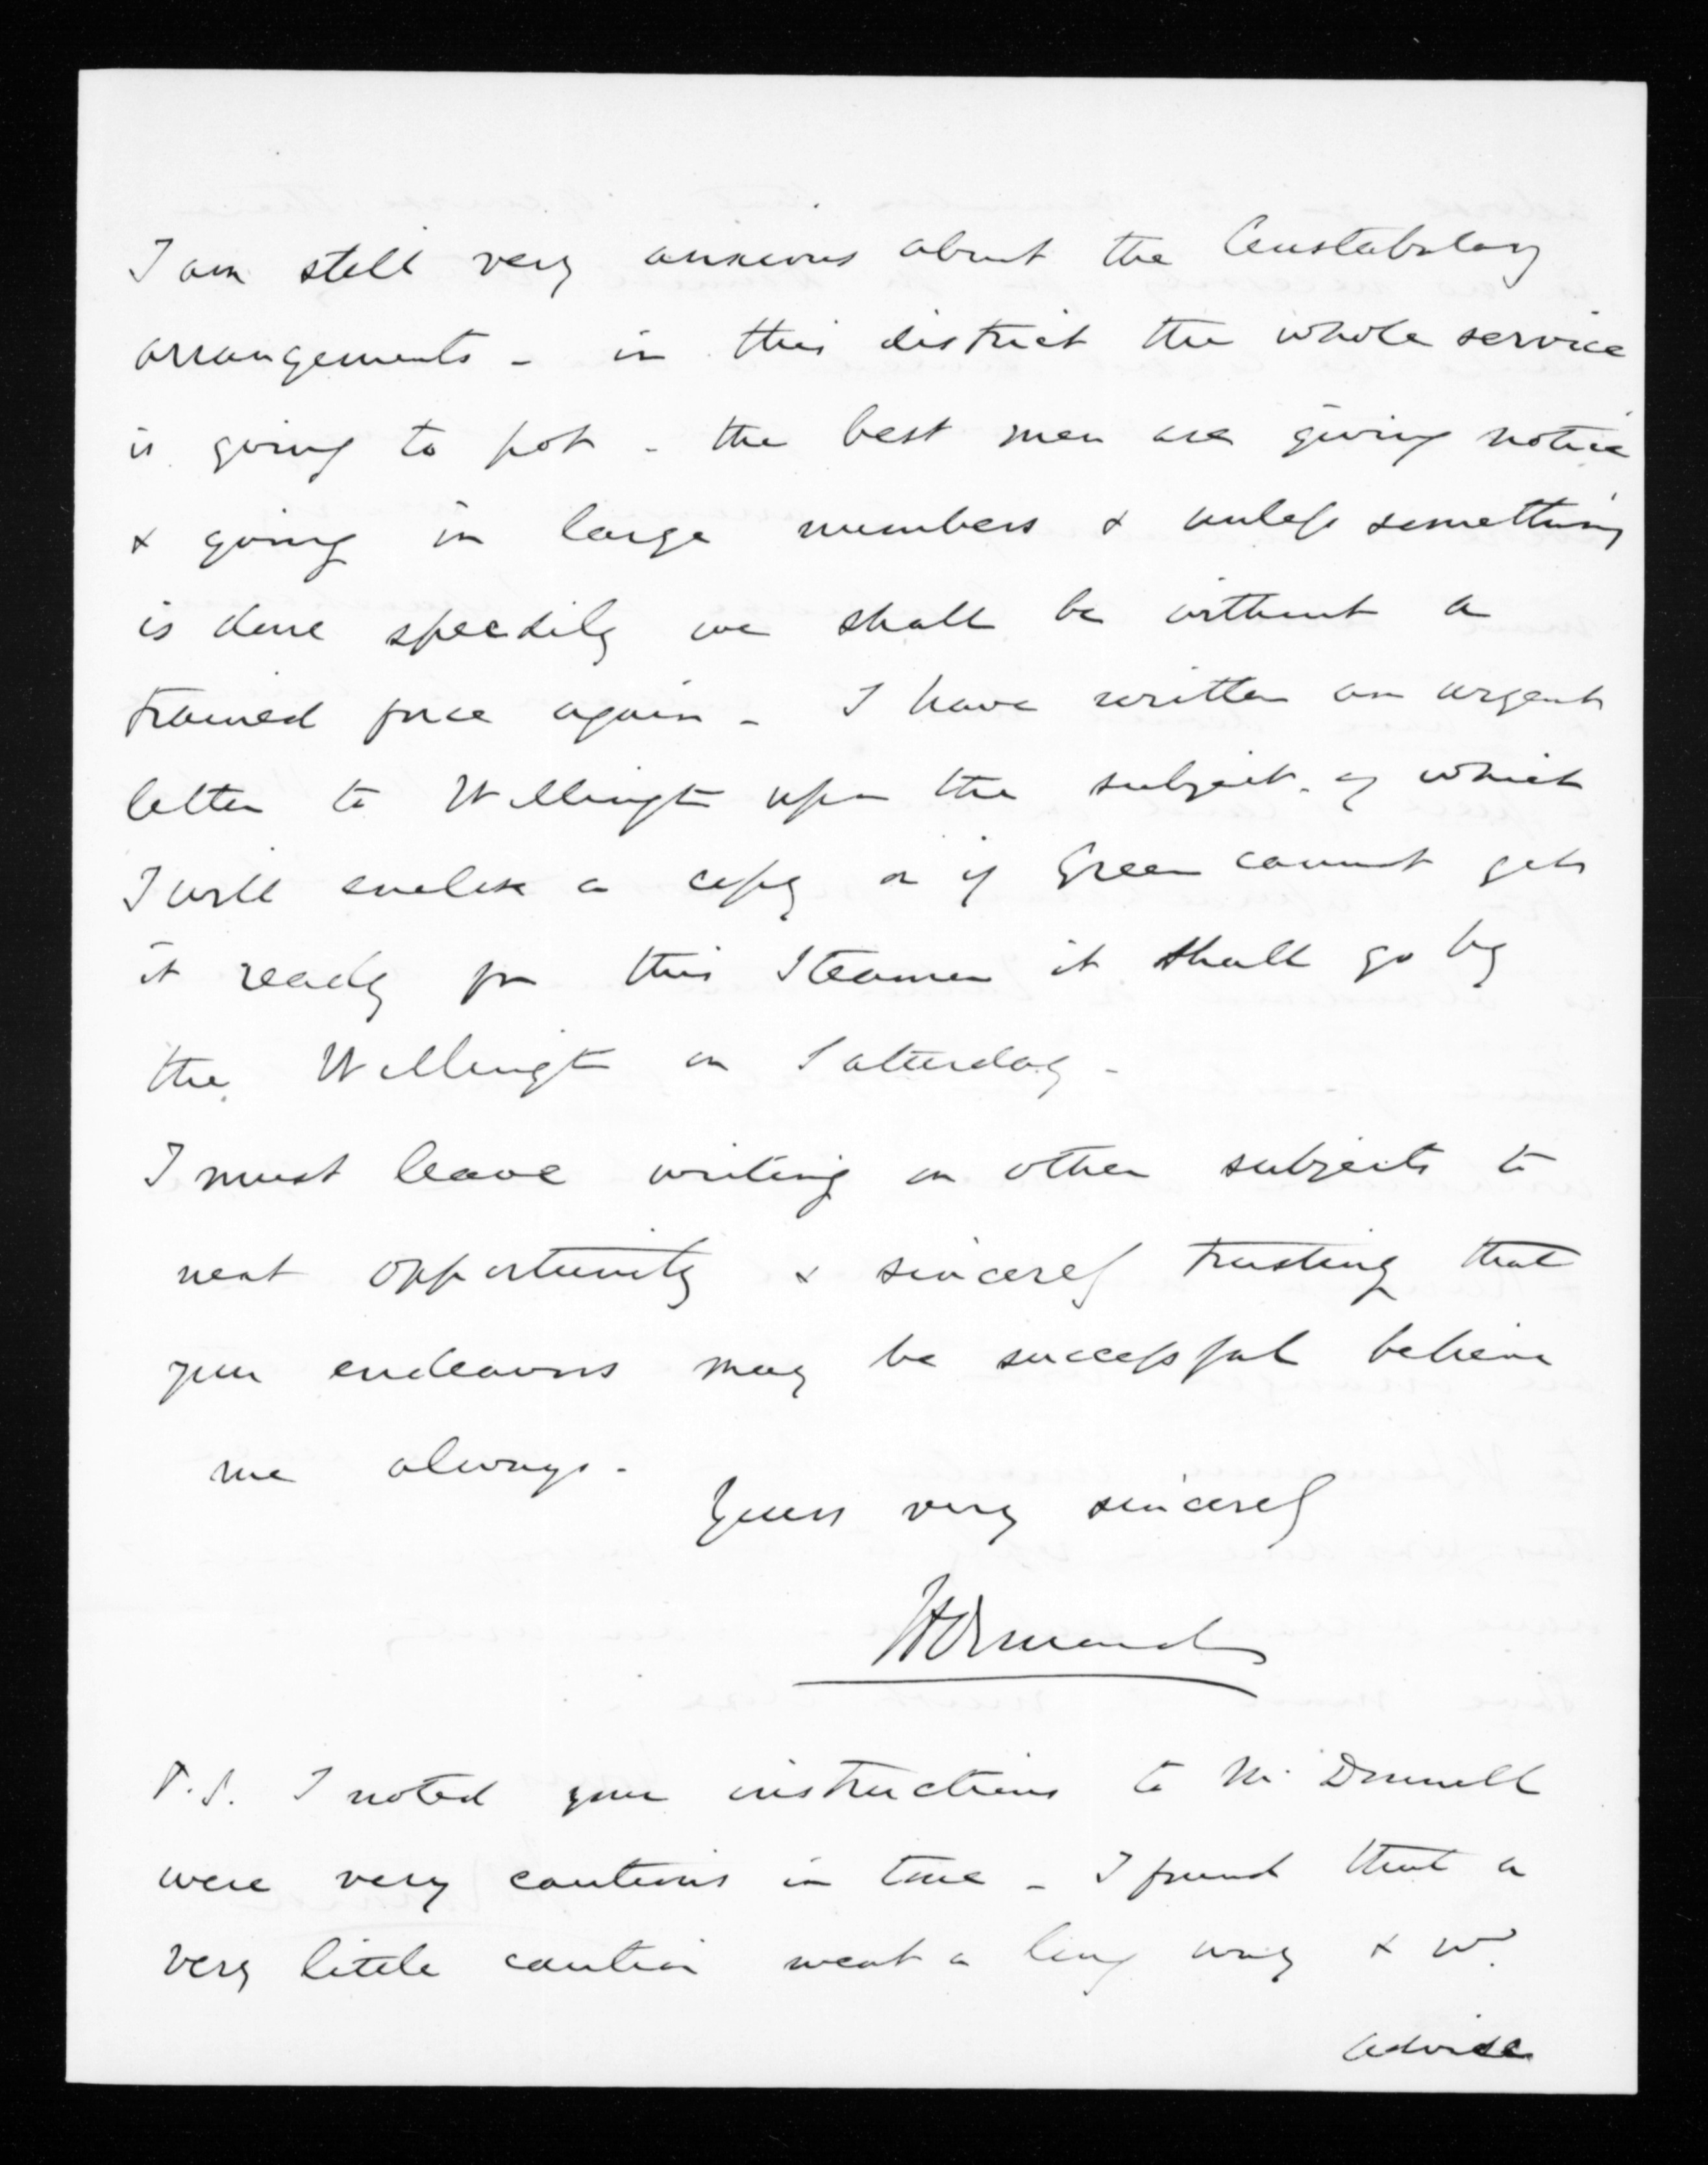 I am still very anxious about the Constabulary
arrangements - in this district the whole service
is going to pot - the best men are giving notice
& going in large numbers & unless something
is done speedily we shall be without a
trained force again - I have written an urgent
letter to Wellington upon the subject - of which
I will enclose a copy or if Green cannot get
it ready for this Steamer it shall go by
the Wellington on Saturday -
I must leave writing on other subjects to
next opportunity & sincerely trusting that
your endeavors may be successful believe
me always -
Yours very sincerely
JD Ormond
P.S. I noted your instructions to McDonnell
were very cautious in tone - I found that a
very little caution went a long way & wd.
advise